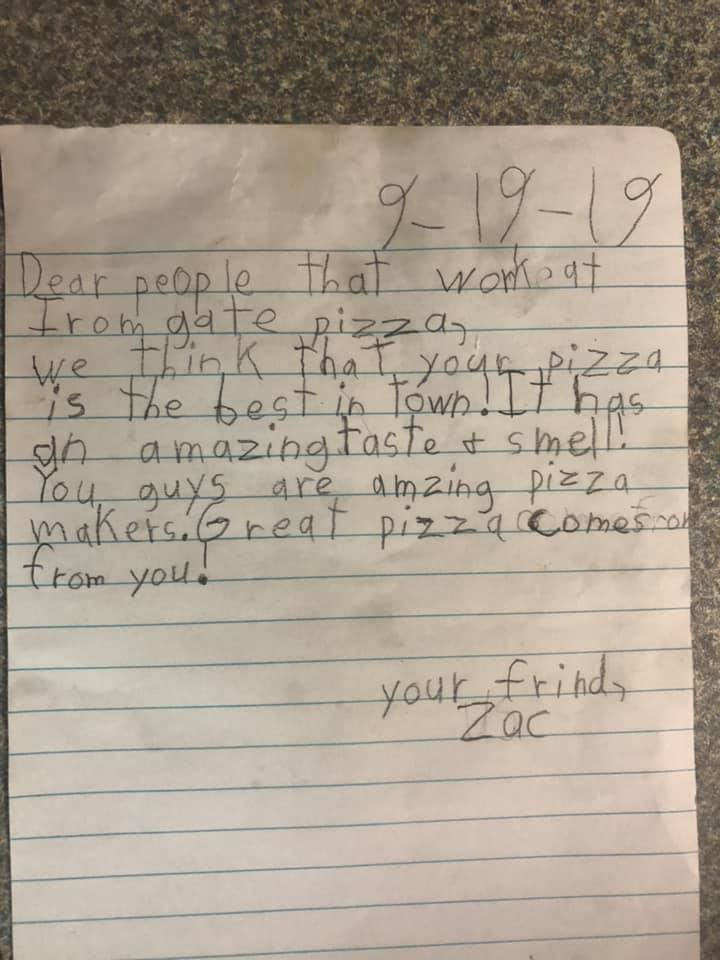 9-19-19
Dear people that work at
from gate pizza,
we think that your pizza
is the best in town! It has
an amazing taste + smell!
You guys are amzing pizza
makers. Great pizza comes
from you!
your frind,
Zac